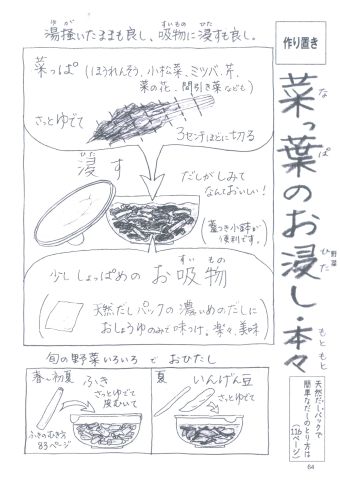 作り置き
菜っ葉のお浸し・本々
な
ぱ
ひた
野菜
もと もと
天然だしパックで
簡単なだしのとり方は
(116ページ)
湯掻いたままも良し、吸物に浸すも良し。
ゆが
すいもの
ひた
菜っぱ(ほうれんそう、小松菜、ミツバ、芹、
菜の花、間引き菜なども)
さっとゆでて
3センチほどに切る
ひた
浸す
だしがしみて
なんておいしい!
(蓋つき小鉢が
便利です。)
すい もの
少ししょっぱめのお吸物
天然だしパックの濃いめのだしに
おしょうゆのみで味つけ。楽々、美味
旬の野菜いろいろでおひたし
春〜初夏
ふき
さっとゆでて
皮むいて
ふきのむき方
83ページ
夏
いんげん豆
さっとゆでて
64